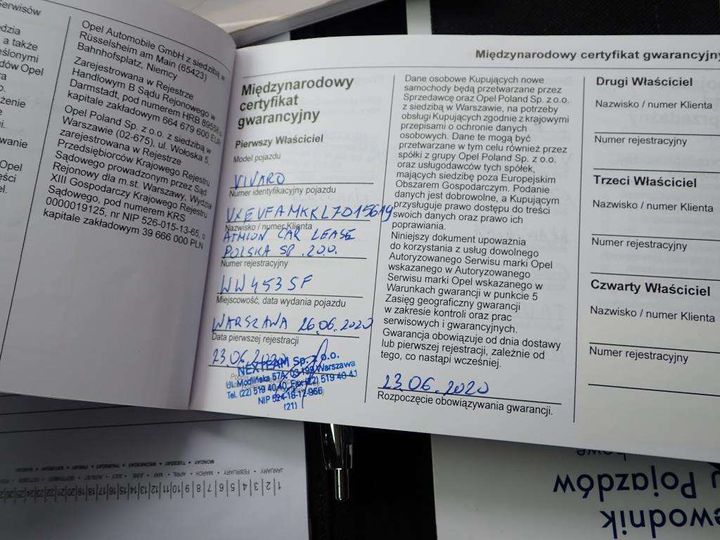 Serwisów
dzia
a także
eślonymi
dów Opel
Opel
Opel Automobile GmbH z siedzibą w
Rüsselsheim am Main (65423)
Bahnhofsplatz, Niemcy
Zarejestrowana w Rejestrze
Handlowym B Sądu Rejonowego w
Darmstadt, pod numerem HRB
kapitale zakładowym 664 679 600 EUR
Opel Poland Sp. z o.o. z siedzibą w
Warszawie (02-675), ul. Wołoska 5,
zarejestrowana w Rejestrze
Przedsiębiorców Krajowego Rejestru
Sądowego prowadzonym przez Sąd
Rejonowy dla m.st. Warszawy, Wydział
XIII Gospodarczy Krajowego Rejestru
Sądowego, pod numerem KRS
0000019125, nr NIP 526-015-13-65, o
kapitale zakładowym 39 666 000 PLN
Międzynarodowy certyfikat gwarancyjny
Międzynarodowy
certyfikat
gwarancyjny
Pierwszy Właściciel
Model pojazdu
VIVARO
Numer identyfikacyjny pojazdu
VXEVFAMKKL7015619
Nazwisko / numer Klienta
CAR LEASE
POLSKA SP. ZO.O.
Numer rejestracyjny
WW453SF
Miejscowość, data wydania pojazdu
WARSZAWA 26.06.2020
Data pierwszej rejestracji
23.06.2020
NEXTEAM Sp. z o.o.
Ul. Modlińska 57A, 03-199 Warszawa
Tel. (22) 519 40 40, Fax (22) 519 40 41
NIP 524-18-12-956
(21)
Dane osobowe Kupujących nowe
samochody będą przetwarzane przez
Sprzedawcę oraz Opel Poland Sp. z o.o.
z siedzibą w Warszawie, na potrzeby
obsługi Kupujących zgodnie z krajowymi
przepisami o ochronie danych
osobowych. Dane te mogą być
przetwarzane w tym celu również przez
spółki z grupy Opel Poland Sp. z o.o.
oraz usługodawców tych spółek,
mających siedzibę poza Europejskim
Obszarem Gospodarczym. Podanie
danych jest dobrowolne, a Kupującym
przysługuje prawo dostępu do treści
swoich danych oraz prawo ich
poprawiania.
Niniejszy dokument upoważnia
do korzystania z usług dowolnego
Autoryzowanego Serwisu marki Opel
wskazanego w Autoryzowanego
Serwisu marki Opel wskazanego w
Warunkach gwarancji w punkcie 5
Zasięg geograficzny gwarancji
w zakresie kontroli oraz prac
serwisowych i gwarancyjnych.
Gwarancja obowiązuje od dnia dostawy
lub pierwszej rejestracji, zależnie od
tego, co nastąpi wcześniej.
23.06.2020
Rozpoczęcie obowiązywania gwarancji.
Drugi Właściciel
Nazwisko / numer Klienta
Numer rejestracyjny
Trzeci Właściciel
Nazwisko / numer Klienta
Numer rejestracyjny
Czwarty Właściciel
Nazwisko / numer Klienta
Numer rejestracyjny
Pojazdów
JANUARY
FEBRUARY